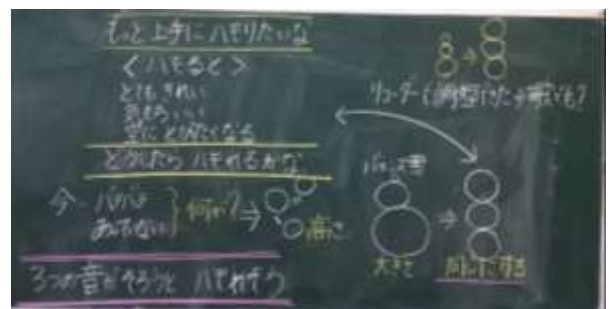 もっと上手にハモりたいな
<ハモると>
とてもきれい
気もちいい
空にとびたくなる
どうしたらハモれるかな
今 バラバラ
あってない
何が?
高さ
3つの音がそろうと ハモれそう
リコーダーで
バランス
大きさ
同じにする